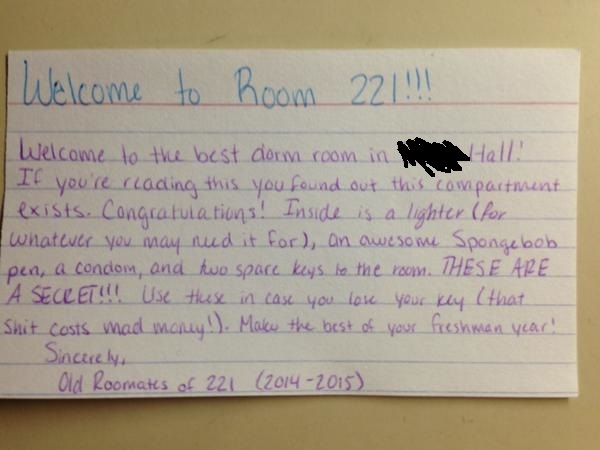 Welcome to Room 221!!!
Welcome to the best dorm room in Hall!
If you're reading this you found out this compartment
exists. Congratulations! Inside is a lighter (for
whatever you may need it for), an awesome Spongebob
pen, a condom, and two spare keys to the room. THESE ARE
A SECRET!!! Use these in case you lose your key (that
shit costs mad money!). Make the best of your freshman year!
Sincerely,
Old Roomates of 221 (2014-2015)